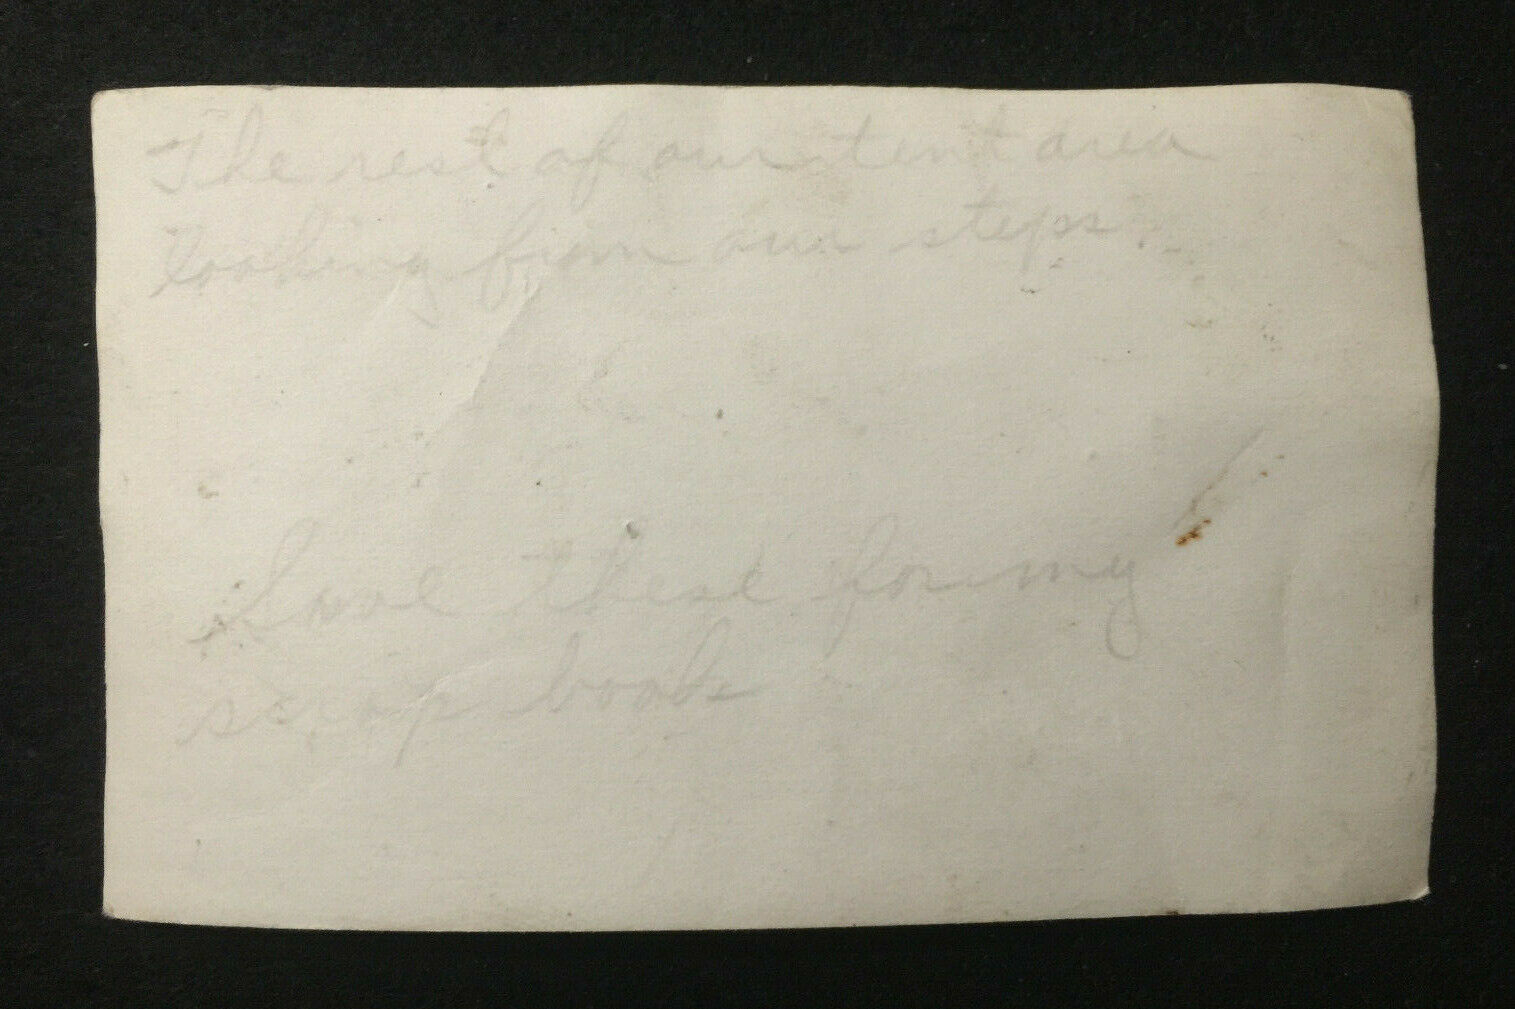 The rest of our tent area
looking from our steps.
Save these for my
scrap book